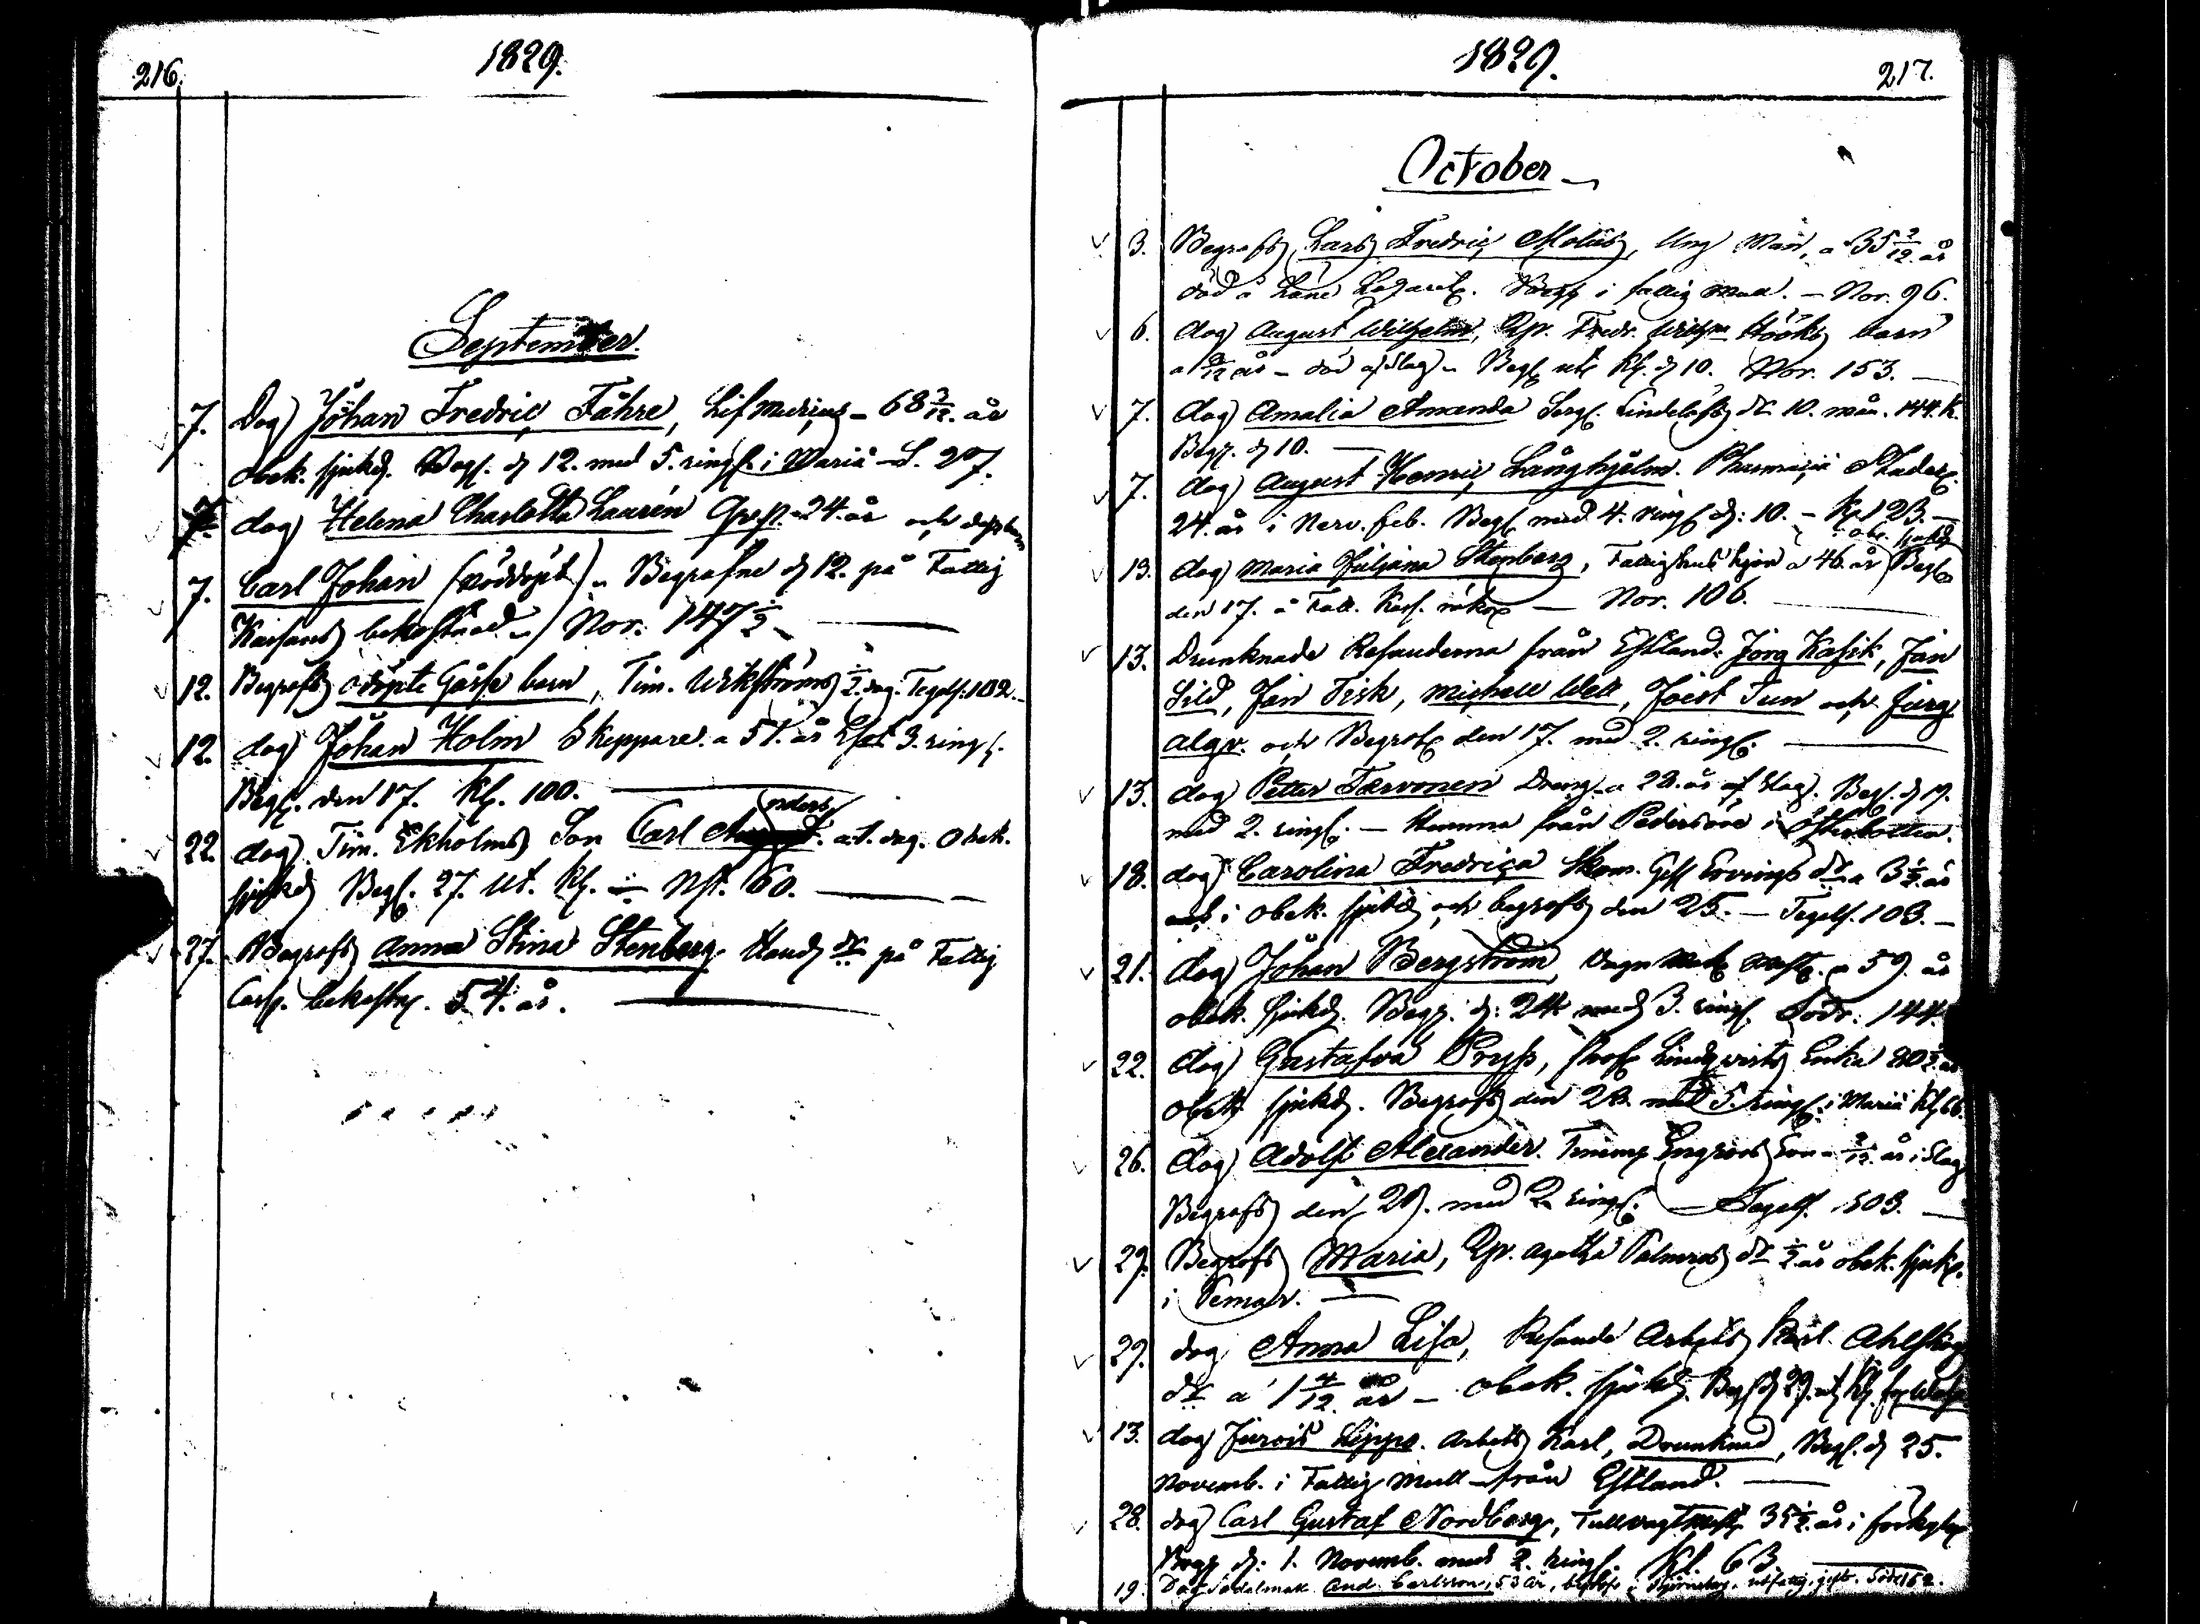 216.
1829.
September.
7. Dog Johan Fredric Fåhre, Lif Medicus - 68 2/12. år
obek. sjukd. Begr. d 12. med 5. ringr. i Maria L. 27.
7. dog Helena Charlotta Laurén 24. år och
7. Carl Johan (nöddöpt) Begrafne d 12. på Fattig
Kassans bekostnad Nor. 147 1/2
12. Begrofs odöpte Gosse barn, Tim. Wikströms 1/2. dag. Tegelf. 102.
12. dog Johan Holm Skeppare. a 51. år 3. ringr.
Begr. den 17. Kl. 100.
22. dog Tim. Ekholms Son Carl a 1. dag. Obek.
sjukd Begr. 27. Ut. Kl. Nst. 60.
27. Begrofs Anna Stina Stenberg dr på Fattig
Cass. bekostn. 54. år.
1829.
217.
October
3. Begrofs Lars Fredric Ung Man, a 35 2/12. år
död å Läns Lazaret. Begr i fattig Mull. - Nor. 96.
6. dog August Wilhelm, Fredr. Wilhm Hööks barn
a år - död af Slag - Begr ut Kl. d 10. Nor. 153.
7. dog Amalia Amanda Serg. Lindelöfs dr 10. mån. 144. K.
Begr. d 10.
7. dog August Henric Långhjelm. Pharmaciæ Studer.
24. år i Nerv. feb. Begr med 4. ringr d: 10. - Kl 123.
obe. sjukd
13. dog Maria Juliana Stenberg, Fattighus hjon a 46. år Begr
den 17. å Fatt. Kass. räkn - Nor. 106.
13. Drunknade Resanderna från Estland. Jörg Kasik, Jan
Sild, Jan Tisk, Michell Well, Joest Tun och Jürg
Algr. och Begrof den 17. med 2. ringr.
13. dog Petter Tærvonen Dreng a 28. år af Slag. Begr. d 19.
med 2. ringr. - Hemma från Pedersöre i Österbotten.
18. dog Carolina Fredrica Skom. Gess dr a 3 1/2. år
i obek. sjukd och begrofs den 25. - Tegelf. 103.
21. dog Johan Bergström, Vagn Mak Mäst. a 59. år
obek. sjukd. Begr. d: 24 med 3. ringr. Södr. 144.
22. dog Gustafva Pryss, Lindqvists Enka 80 1/2 år
obek sjukd. Begrofs den 28. med 5. ringr. i Maria Kl 66.
26. dog Adolf Alexander. Timerm Engroos Son a 2/12. år i Slag
Begrofs den 29. med 2 ringr. - Tegelf. 103.
29. Begrofs Maria, Agatha Palmros dr 1/2. år obek. sjukd.
i Pemar.
29. dog Anna Lisa, Resande Arbets Karl. Ahlskog
dr a 1 4/12. år - obek. sjukd. Begr d 29. ut Kl.
13. dog Jürois Lippo. Arbets Karl, Drunknad, Begr. d 25.
Novemb. i Fattig Mull - från Estland.
28. dog Carl Gustaf Nordberg, Tullvagtmst. 35 1/2. år i förkyln
Begr d: 1. Novemb. med 2. ringr. Kl. 63.
19. Dog Sadelmak. And. Carlsson, 53 år, begrofs i Björneborg. Södr 152.